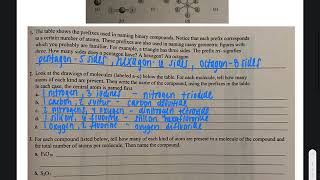 5. The table shows the prefixes used in naming binary compounds. Notice that each prefix corresponds
to a certain number of atoms. These prefixes are also used in naming many geometric figures with
which you probably are familiar. For example, a triangle has three sides. The prefix tri- signifies
three. How many sides does a pentagon have? A hexagon? An octagon?
pentagon-5 sides, hexagon-6 sides, octagon-8 sides
Look at the drawings of molecules (labeled a-e) below the table. For each molecule, tell how many
atoms of each kind are present. Then write the name of the compound, using the prefixes in the table.
In each case, the central atom is named first.
a. 1 nitrogen, 3 iodines - nitrogen triiodide
b. 1 carbon, 2 sulfur - carbon disulfide
c. 2 nitrogens, 4 oxygen - dinitrogen tetroxide
d. 1 silicon, 4 fluorine - silicon
e. 1 oxygen, 2 fluorine - oxygen difluoride
For each compound listed below, tell how many of each kind of atom are present in a molecule and
the total number of atoms per molecule. Then name the compound.
a. P₄O₁₀
b. S₂O₇